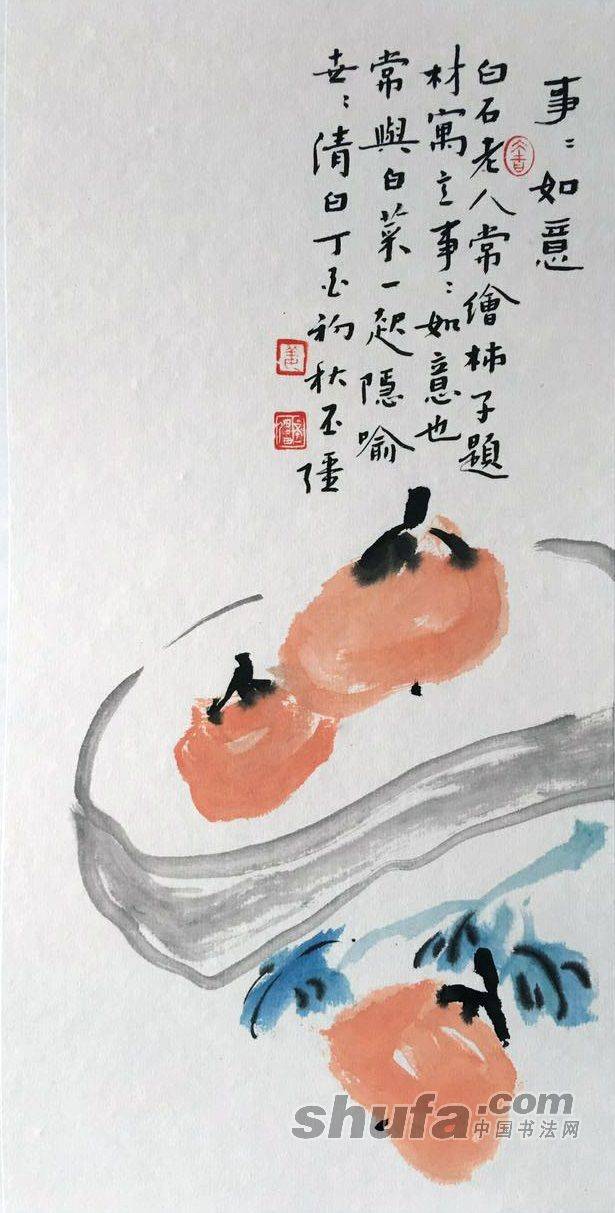 事:如意
白石老人常繪柿子題
材寓之事:如意也
常與白菜一起隱喻
世:清白丁酉初秋玉璽
shufa.com
中国书法网